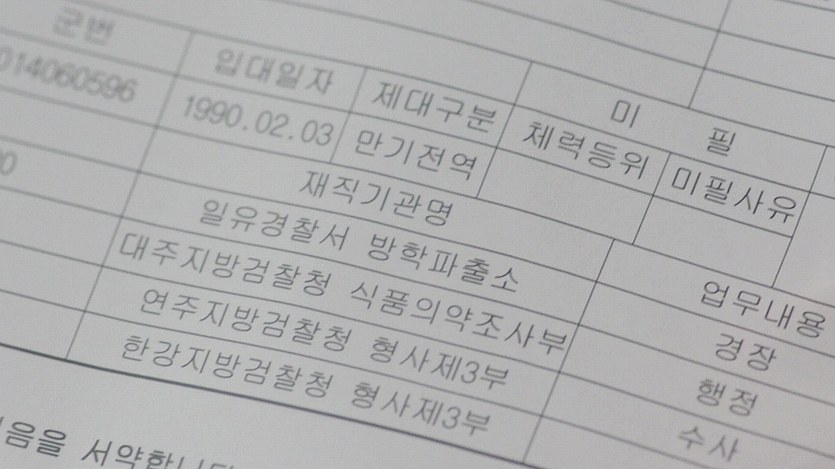 군번 입대일자 제대구분 미 필
014060596 1990.02.03 만기전역 체력등위 미필사유
재직기관명 업무내용
일유경찰서 방학파출소 경장
대주지방검찰청 식품의약조사부 행정
연주지방검찰청 형사제3부 수사
한강지방검찰청 형사제3부
음을 서약합니다